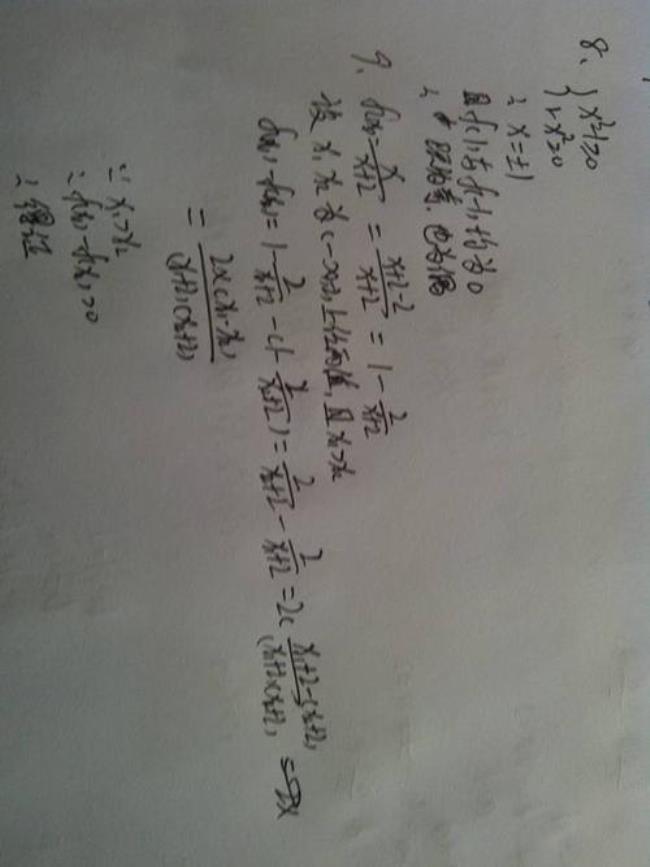 8、{ x²-1≥0
1-x²≥0
∴ x=±1
且f(1)与f(-1)均为0
∴ 既为奇,也为偶
9、 f(x)=x/(x+2) = (x+2-2)/(x+2) = 1 - 2/(x+2)
设 x₁ x₂ 为(-∞,-2)上任两值,且x₁>x₂
f(x₁)-f(x₂)= 1 - 2/(x₁+2) - (1 - 2/(x₂+2)) = 2/(x₂+2) - 2/(x₁+2) = 2( (x₁+2-(x₂+2))/((x₁+2)(x₂+2))
= 2(x₁-x₂)/((x₁+2)(x₂+2))
∵ x₁>x₂
∴ f(x₁)-f(x₂)>0
∴ 得证